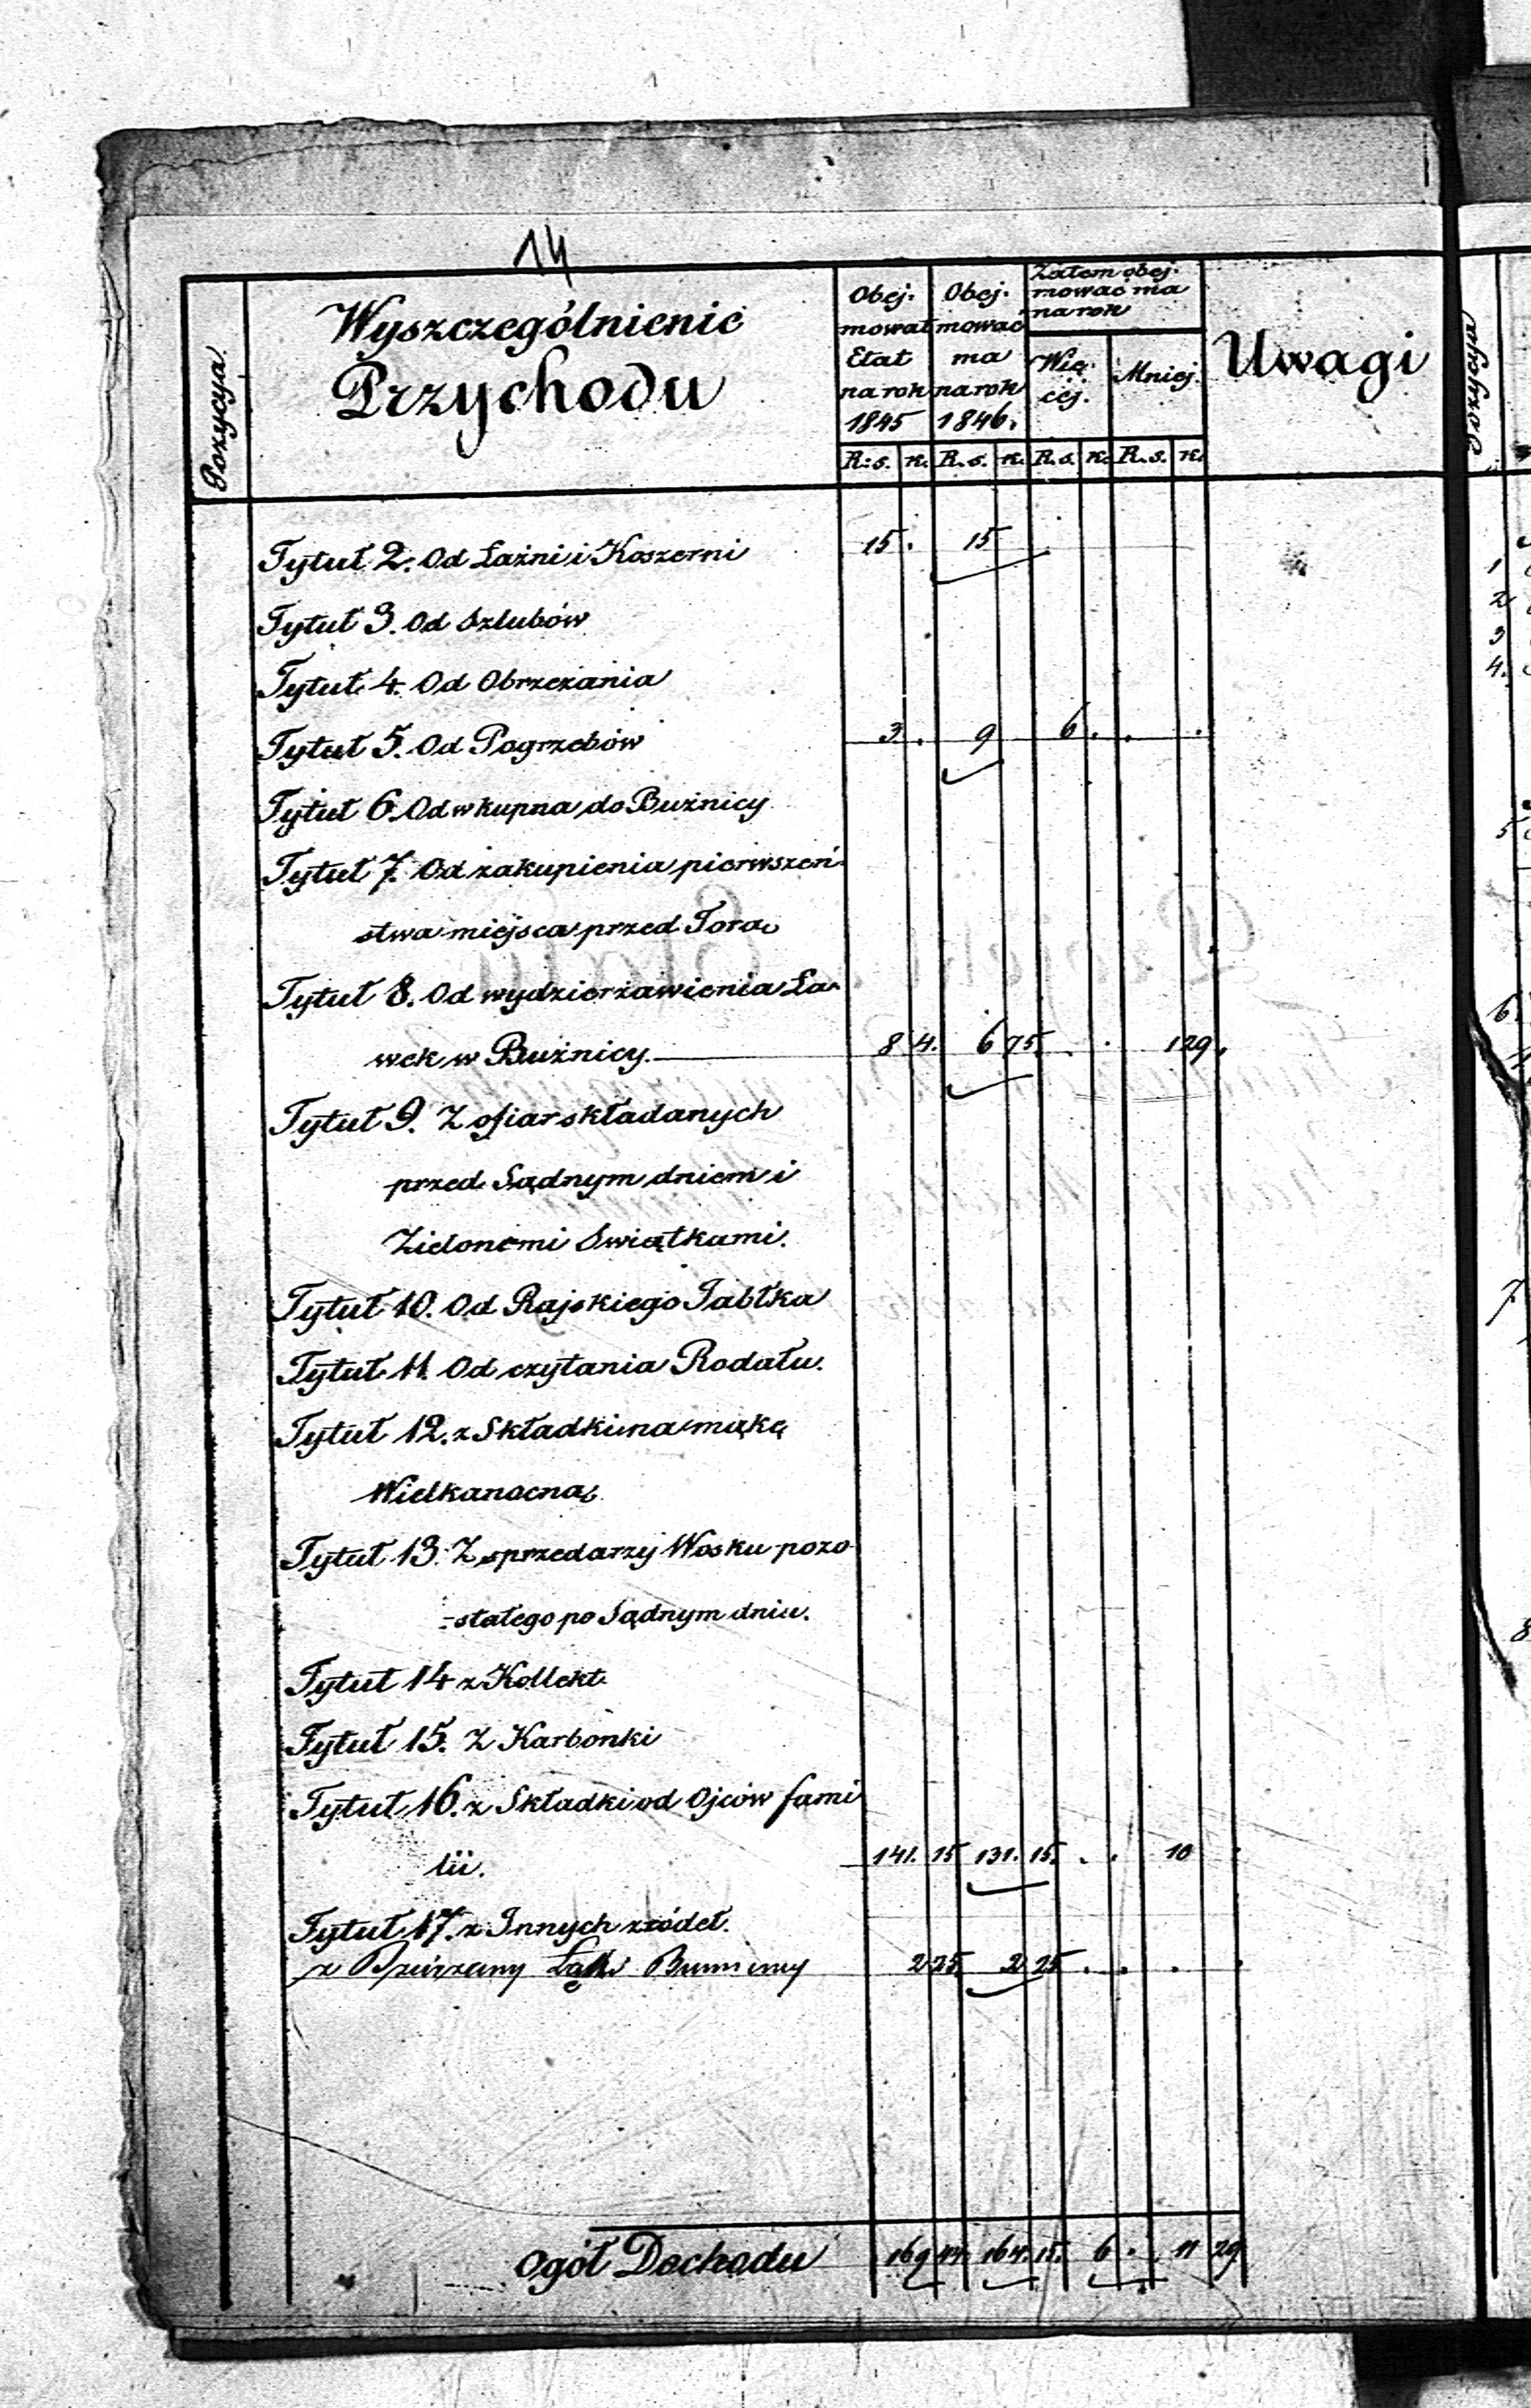 14
Pozycya
Wyszczególnienie
Przychodu
Obej-
mował
Etat
na rok
1845
Obej-
mować
ma
na rok
1846.
Zatem obej-
mować ma
na rok
Wię-
céj.
Mniej
Uwagi
R. s. k. R. s. k. R. s. k. R. s. k.
Tytuł 2. Od Łaźni i Koszerni 15 . 15
Tytuł 3. Od Szlubów
Tytuł 4. Od Obrzezania
Tytuł 5. Od Pogrzebów 3 . 9 6 . . .
Tytuł 6. Od wkupna do Bużnicy
Tytuł 7. Od zakupienia pierwszeń-
stwa miejsca przed Torą
Tytuł 8. Od wydzierżawienia Ła-
wek w Bużnicy. 8 4. 6 75. . . 1 29.
Tytuł 9. Z ofiar składanych
przed Sądnym dniem i
Zielonemi Swiątkami.
Tytuł 10. Od Rajskiego Jabłka
Tytuł 11. Od czytania Rodału.
Tytuł 12. z Składki na mąkę
Wielkanocną
Tytuł 13. Z sprzedarzy Wosku pozo
-stałego po Sądnym dniu.
Tytuł 14 z Kollekt
Tytuł 15. Z Karbonki
Tytuł 16. z Składki od Ojców fami
lii. 141. 15 131. 15. . . 10
Tytuł 17. z Innych zródeł.
z 2 25. 2 25 . . .
Ogół Dochodu 169 44. 164. 15. 6 . 11 29
Pozycya
1
2
3
4.
5
6.
7
8